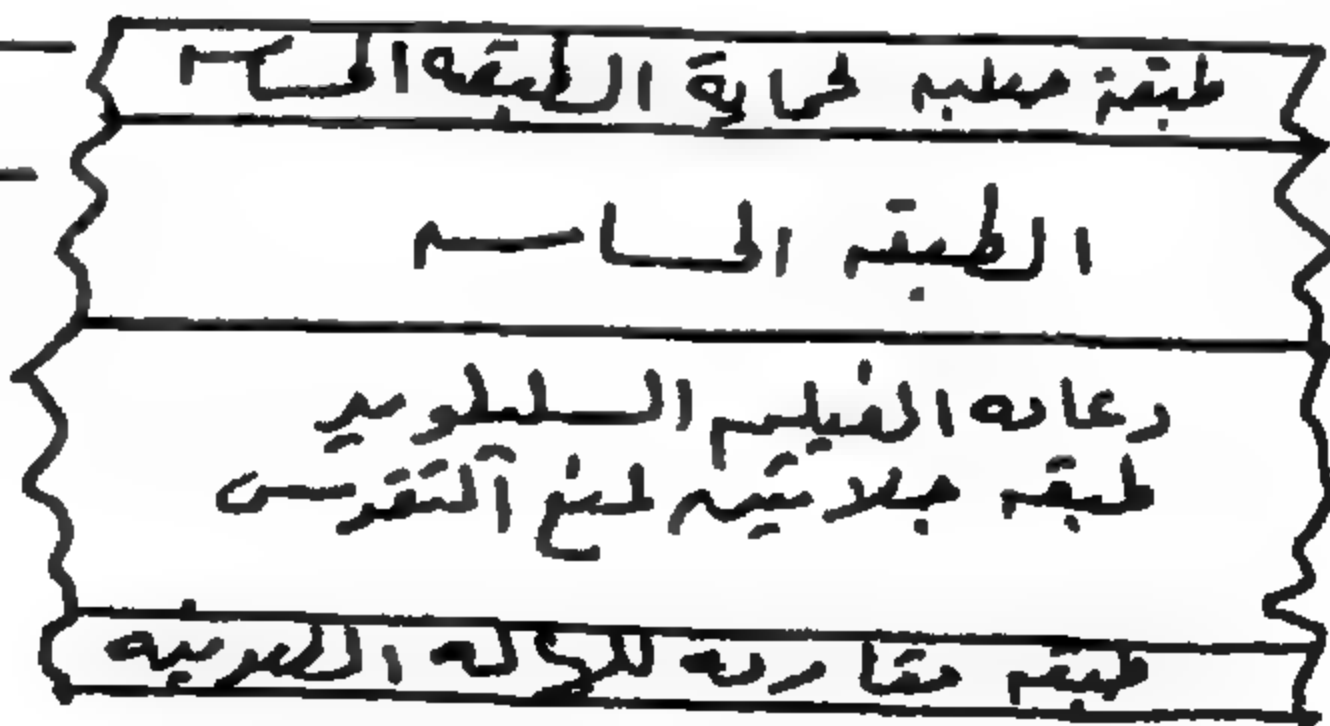 طبقة صلبه لحماية الطبقه الحساسه
الطبقه الحساسه
دعامه الفيلم السليلويد
طبقه جلاتينيه لمنع التقوس
طبقه مقاومه للهاله الضوئيه